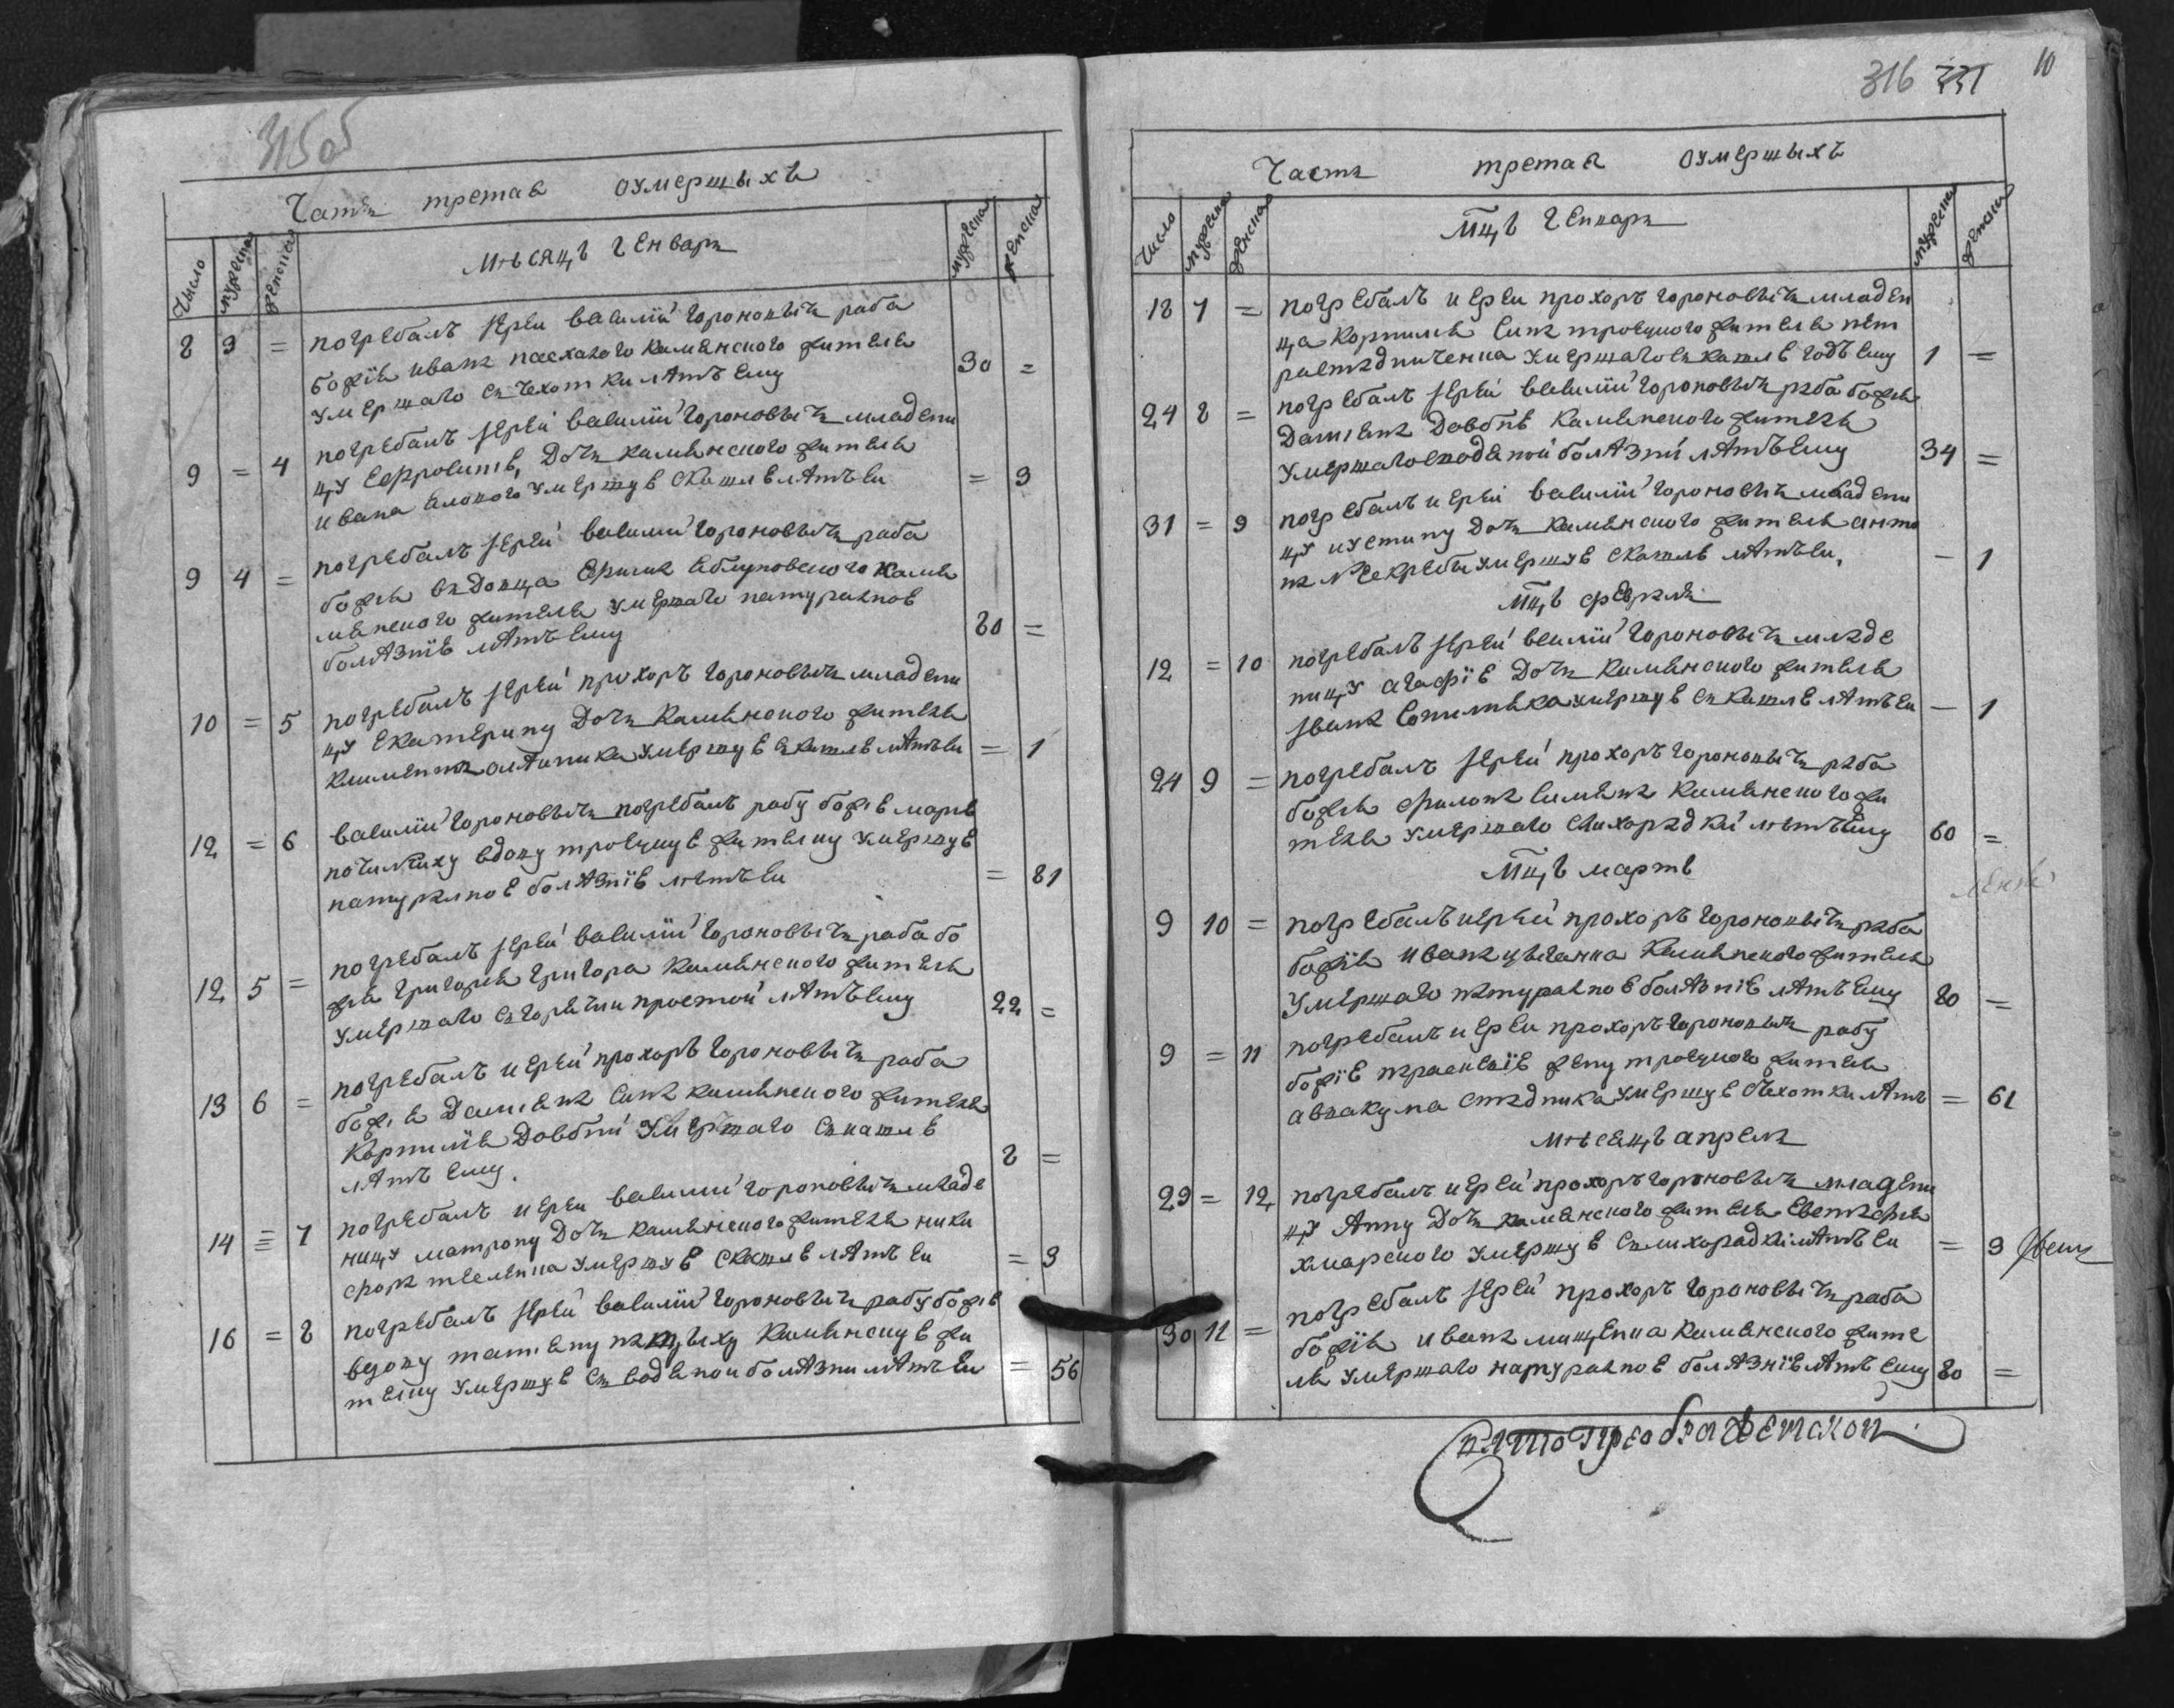 315об
Часть третая оумершыхъ
Число мужеска женска мѣсяцъ генварь мужеска женска
8 3 = погребалъ іерей василий гороновычъ раба
божія ивана каменского жителя
умершаго съ чехотки лѣтъ ему 30 =
9 = 4 погребалъ іерей василий гороновычъ младени
цу Доч каменского жителя
ивана умершує скашлѣ лѣтъ ей = 3
9 4 = погребалъ іерей василий гороновычъ раба
божія вдовца каме
менского жителя умершаго натуралноє
болѣзніє лѣтъ ему 80 =
10 = 5 погребалъ іерей прохоръ гороновычъ младени
цу екатерину Доч каменского жителя
умершує скашлѣ лѣтъ ей = 1
12 = 6 василий гороновычъ погребалъ рабу божіє марію
вдову троецкує жителку умершує
натуралноє болѣзніє лѣтъ ей = 81
12 5 = погребалъ іерей василий гороновычъ раба бо
жія григорія григора каменского жителя
умершаго съ горячки простой лѣтъ ему 22 =
13 6 = погребалъ иерей прохоръ гороновычъ раба
божія Даміана сина каменского жителя
Корнилія Довбни умершаго съ кашлѣ
лѣтъ ему. 8 =
14 = 7 погребалъ иерей василий гороновычъ младе
ницу матрону Доч каменского жителя ники
фора умершує скашлѣ лѣтъ ей = 3
16 = 8 погребалъ іерей василий гороновычъ рабу божіє
вдову татіяну каменскує жи
телку умершує съ водяной болѣзни лѣтъ ей = 56
316 331 10
Часть третая оумершыхъ
Число мужеска женска мцъ генварь мужеска женска
18 7 = погребалъ иерей прохоръ гороновычъ младен
ца корнилія сина троецкого жителя пет
умершаго съ кашлѣ годъ ему 1 =
24 8 = погребалъ іерей василий гороновычъ раба божія
Даміана Довбня каменского жителя
умершаго сводяной болѣзни лѣтъ ему 34 =
31 = 9 погребалъ иерей василий гороновычъ младени
цу иустину Доч каменского жителя анто
на умершує скашлѣ лѣтъ ей. - 1
мцъ февраль
12 = 10 погребалъ іерей василий гороновычъ младе
ницу агафіє Доч каменского жителя
івана умершує съ кашлѣ лѣтъ ей - 1
24 9 = погребалъ іерей прохоръ гороновычъ раба
божія филона каменского жи
теля умершаго слихорадки лѣтъ ему 60 =
мцъ мартъ
9 10 = погребалъ иерей прохоръ гороновычъ раба
божія ивана каменского жителя
умершаго натуралноє болѣзніє лѣтъ ему 80 =
9 = 11 погребалъ иерей прохоръ гороновычъ рабу
божіє параскевіє жену троецкого жителя
аввакума умершує счехотки лѣтъ = 61
мѣсецъ апрель
29 = 12 погребалъ иерей прохоръ гороновычъ младени
цу Анну Доч каменского жителя Евстафія
хмарского умершує съ лихорадки лѣтъ ей = 3
30 11 = погребалъ іерей прохоръ гороновычъ раба
божія ивана каменского жите
ля умершаго натуралноє болѣзніє лѣтъ ему 80 =